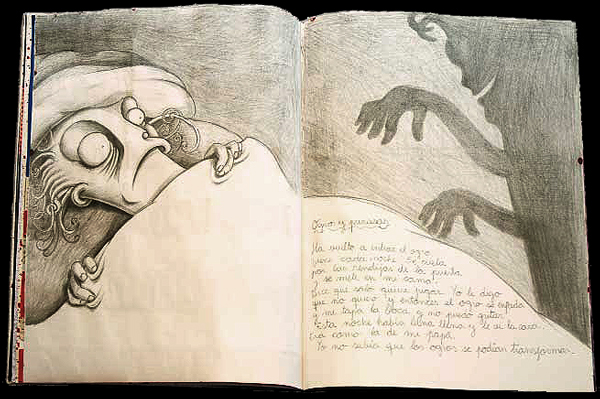 Ogros y princesas
Ha vuelto a entrar el ogro
viene cada noche. Se cuela
por las rendijas de la puerta
y se mete en mi cama.
Dice que solo quiere jugar. Yo le digo
que no quiero y entonces el ogro se enfada
y me tapa la boca y no puedo gritar.
Esta noche había luna llena y le vi la cara.
Era como la de mi papá.
Yo no sabía que los ogros se podían transformar.